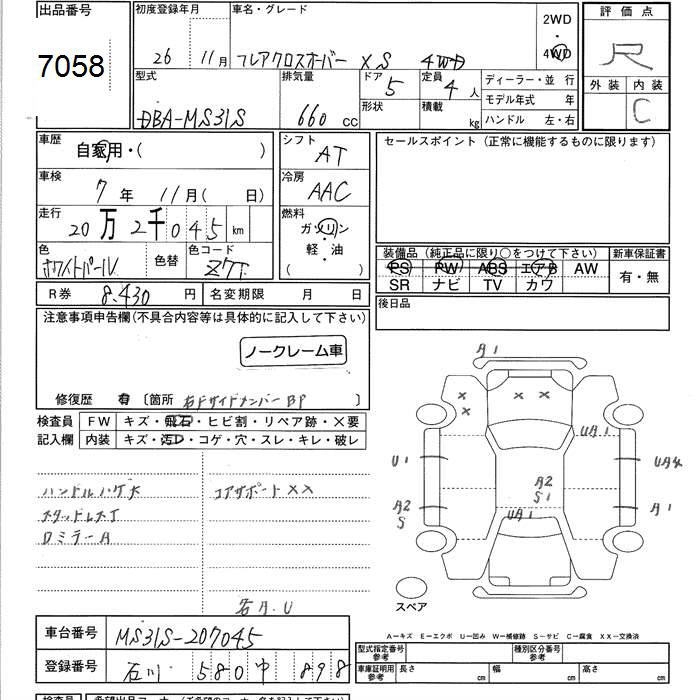 出品番号 初度登録年月 車名・グレード 2WD 評価点
7058 26 11月 フレアクロスオーバー XS 4WD 4WD R
型式 排気量 ドア 5 定員 4人 ディーラー・並 行 外装 内装
DBA-MS31S 660 cc 形状 積載 kg モデル年式 年 C
ハンドル 左・右
車歴 自家用・( ) シフト AT セールスポイント (正常に機能するものに限ります)
車検 7年 11月 ( 日) 冷房 AAC
走行 20万2千045 km 燃料 ガソリン
軽・油
( )
色 ホワイトパール 色替 色コード Z7T 装備品 (純正品に限り○をつけて下さい) 新車保証書
PS PW ABS エアB AW 有・無
SR ナビ TV カワ
R券 8,430 円 名変期限 月 日 後日品
注意事項申告欄(不具合内容等は具体的に記入して下さい)
ノークレーム車
修復歴 有 〔箇所 右Fサイドメンバー BP 〕
検査員 FW キズ・飛石・ヒビ割・リペア跡・×要
記入欄 内装 キズ・汚レ・コゲ・穴・スレ・キレ・破レ
コアサポートXX
ドミラーA
A1
UA1
U1
UA4
A2
S1
A2
S
A1
UA1
スペア
A-キズ E-エクボ U-凹み W-補修跡 S-サビ C-腐食 XX-交換済
車台番号 MS31S-207045
登録番号 石川 580 や 898
型式指定番号 参考 種別区分番号 参考
車庫証明用 参考 長さ cm 幅 cm 高さ cm